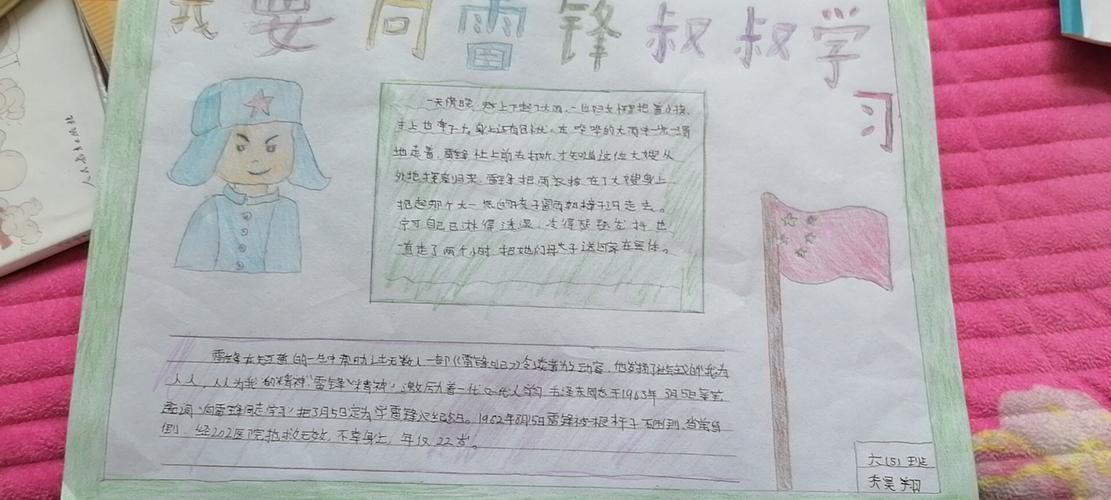 我要向雷锋叔叔学
习
一天傍晚,天上下起了大雨,一位妇女怀里抱着小孩
手上也牵了,身上还有包袱,在哗哗的大雨中一步一滑
地走着,雷锋上前去打听,才知道这位大嫂从
外地探亲归来,雷锋把雨衣披在了大嫂身上
抱起那个大一点的孩子冒雨和走去。
宁可自己淋得透湿,发抖也
直走了两个小时,把她们母子送回家
雷锋在短暂的一生中帮助过无数人,一部《雷锋日记》令读者为动容,他的我为
人人,人人为我的精神"雷锋"精神,激励着一代又一代人的,毛泽东同志于1963年3月5日
题词"向雷锋同志学习"把3月5日定为学雷锋纪念日。1962年8月15日雷锋被根杆子到,当场
倒,经202医院抢救无效,不幸身亡,年仅22岁。
六(5)班
昊翔